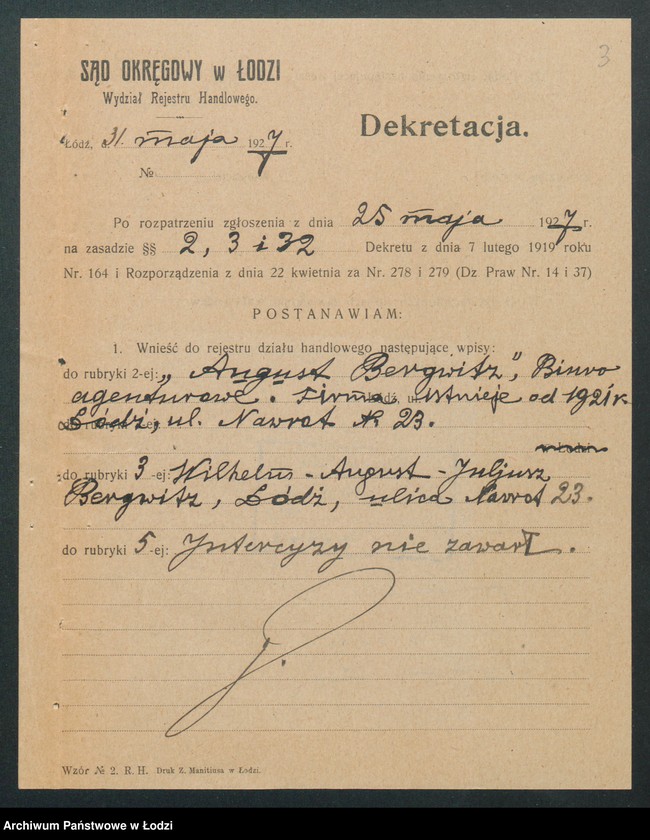 3
SĄD OKRĘGOWY w ŁODZI
Wydział Rejestru Handlowego.
Dekretacja.
Łódź, d. 31. maja 1927 r.
№
Po rozpatrzeniu zgłoszenia z dnia 25 maja 1927 r.
na zasadzie §§ 2, 3 i 32 Dekretu z dnia 7 lutego 1919 roku
Nr. 164 i Rozporządzenia z dnia 22 kwietnia za Nr. 278 i 279 (Dz. Praw Nr. 14 i 37)
POSTANAWIAM:
1. Wnieść do rejestru działu handlowego następujące wpisy:
do rubryki 2-ej: „August Bergwitz", Biuro
agenturowe. Firma istnieje od 1921 r.
Łódź, ul. Nawrot № 23.
do rubryki 3-ej: Wilhelm-August-Juljusz
Bergwitz, Łódź, ulica Nawrot 23.
do rubryki 5-ej: Intercyzy nie zawarł.
Wzór № 2. R. H. Druk Z. Manitiusa w Łodzi.
Archiwum Państwowe w Łodzi